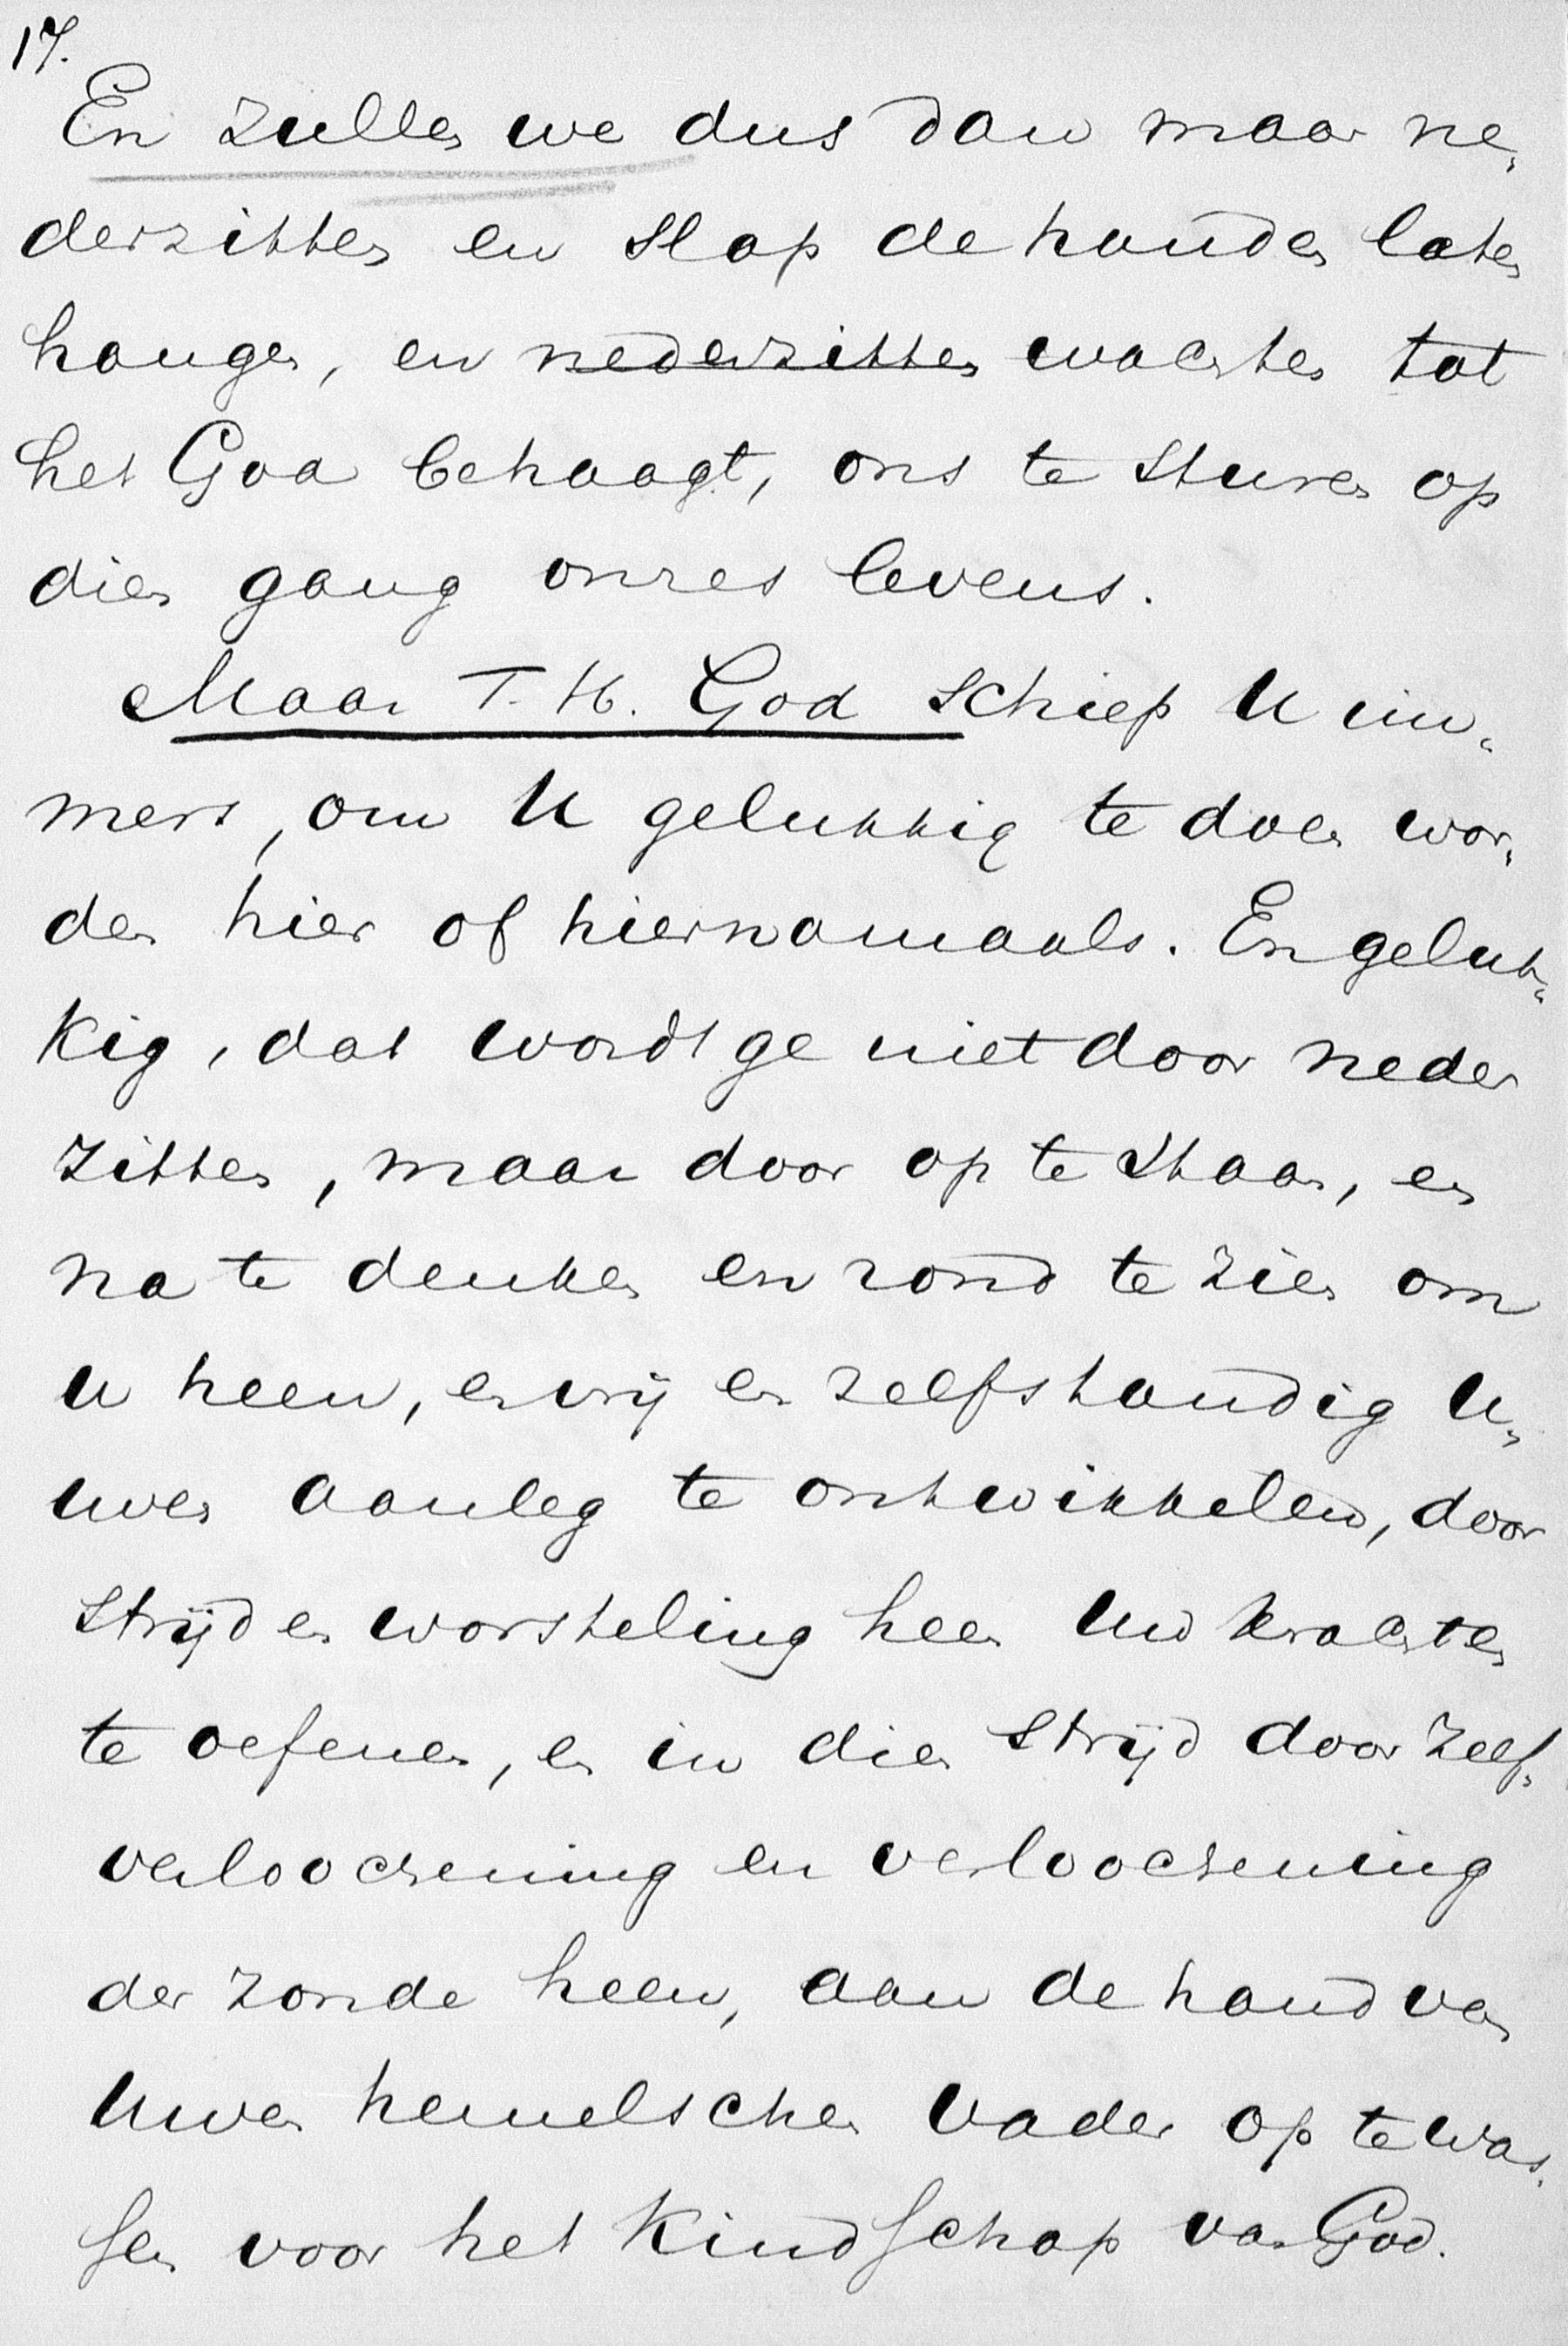 17.
En zullen we dus dan maar ne„
derzitten en slap de handen laten
hangen, en nederzitten wachten tot
het God behaagt, ons te sturen op
dien gang onzes levens.
Maar T. H. God schiep U im„
mers, om U gelukkig te doen wor„
den hier of hiernamaals. En geluk„
kig, dat wordt ge niet door neder
zitten, maar door op te staan, en
na te denken en rond te zien om
u heen, en vrij en zelfstandig U„
wen aanleg te ontwikkelen, door
strijd en worsteling heen Uw krachten
te oefenen, en in dien strijd door zelf„
verloochening en verloochening
der zonde heen, aan de hand van
Uwen hemelschen Vader op te was„
sen voor het Kindschap van God.